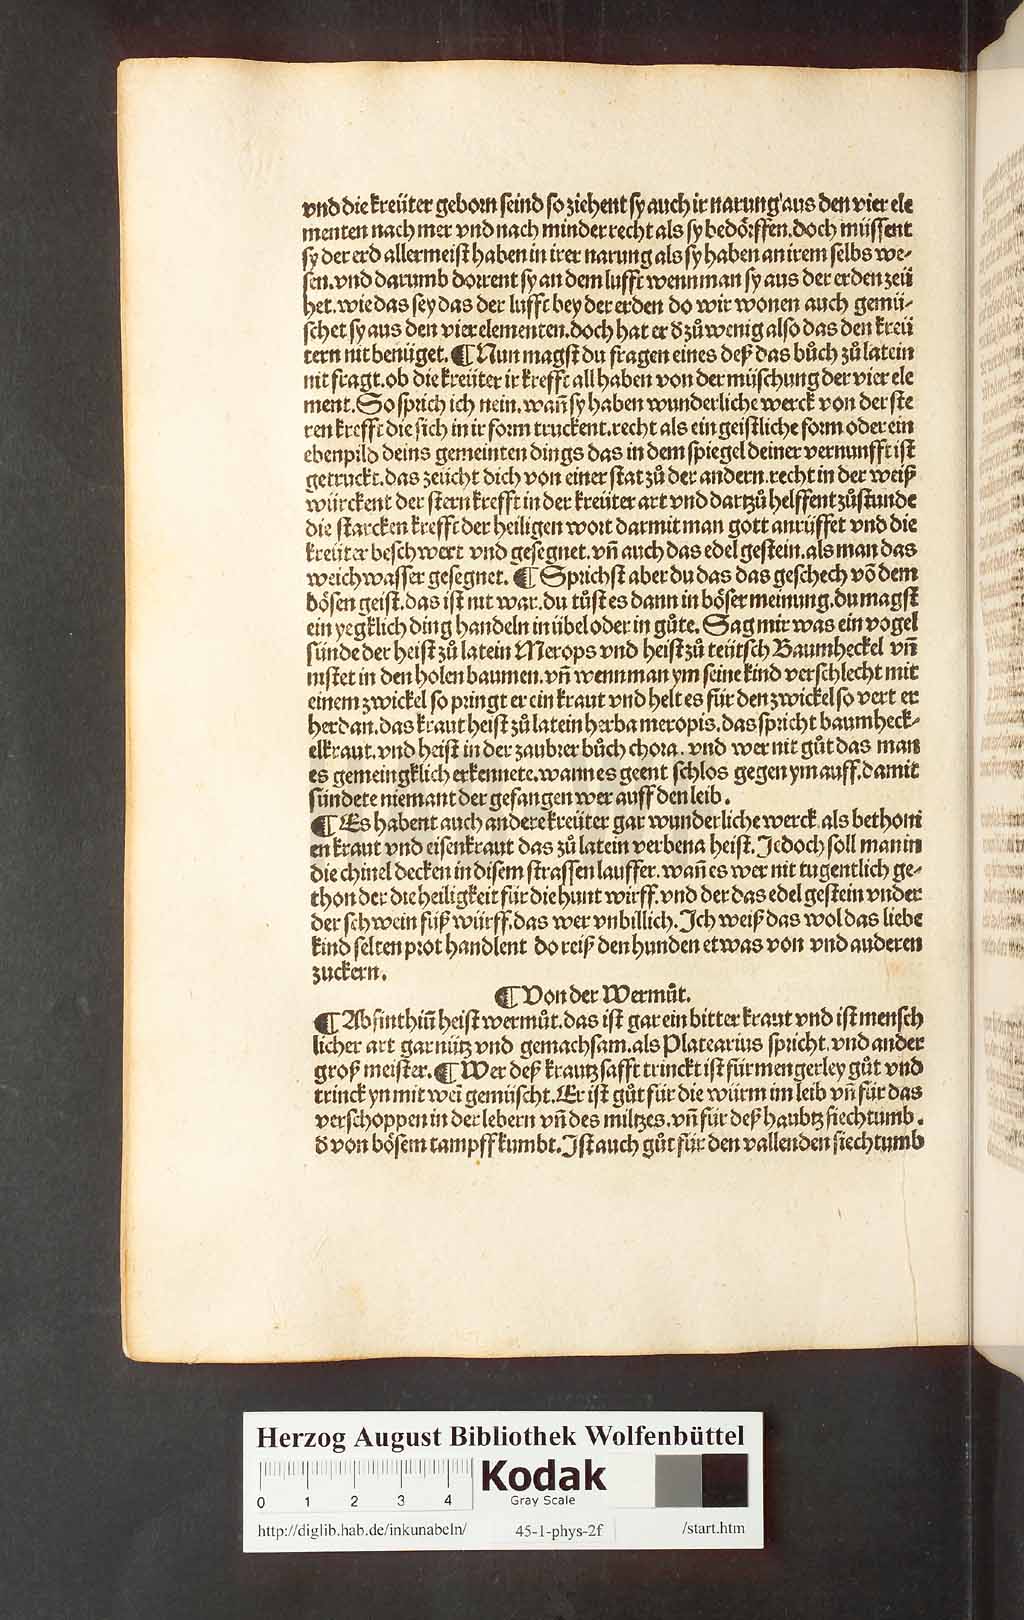 vnd die kreüter geborn seind so ziehent sy auch ir narung aus den vier ele
menten nach mer vnd nach minder recht als sy bedörffen. doch müssent
sy der erd allermeist haben in irer narung als sy haben an irem selbs we-
sen. vnd darumb dorrent sy an dem lufft wenn man sy aus der erden zeü
het. wie das sey das der lufft bey der erden do wir wonen auch gemü-
schet sy aus den vier elementen. doch hat er d zů wenig also das den kreü
tern nit benüget. ¶ Nun magst du fragen eines deß das bůch zů latein
nit fragt. ob die kreüter ir krefft all haben von der müschung der vier ele
ment. So sprich ich nein. wañ sy haben wunderliche werck von der ste
ren krefft die sich in ir form truckent. recht als ein geistliche form oder ein
ebenpild deins gemeinten dings das in dem spiegel deiner vernunfft ist
getruckt. das zeücht dich von einer stat zů der andern. recht in der weiß
würckent der stern krefft in der kreüter art vnd dartzů helffent zů stunde
die starcken krefft der heiligen wort darmit man gott anrüffet vnd die
kreüter beschwert vnd gesegnet. vñ auch das edel gestein. als man das
weichwasser gesegnet. ¶ Sprichst aber du das das geschech võ dem
bösen geist. das ist nit war. du tůst es dann in böser meinung. du magst
ein yegklich ding handeln in übel oder in gůte. Sag mir was ein vogel
sünde der heist zů latein Merops vnd heist zů teütsch Baumheckel vñ
nistet in den holen baumen. vñ wenn man ym seine kind verschlecht mit
einem zwickel so pringt er ein kraut vnd helt es für den zwickel so vert er
herdan. das kraut heist zů latein herba meropis. das spricht baumheck-
elkraut. vnd heist in der zaubrer bůch chora. vnd wer nit gůt das man
es gemeingklich erkennete. wann es geent schlos gegen ym auff. damit
sündete niemant der gefangen wer auff den leib.
¶ Es habent auch andere kreüter gar wunderliche werck. als bethoni
en kraut vnd eisenkraut das zů latein verbena heist. Jedoch soll man in
die chinel decken in disem strassen lauffer. wañ es wer nit tugentlich ge-
thon der die heiligkeit für die hunt würff. vnd der das edel gestein vnder
der schwein füß würff. das wer vnbillich. Ich weiß das wol das liebe
kind selten prot handlent do reiß den hunden etwas von vnd anderen
zuckern.
¶ Von der Wermůt.
¶ Absinthiū heist wermůt. das ist gar ein bitter kraut vnd ist mensch
licher art gar nütz vnd gemachsam. als Platearius spricht. vnd ander
groß meister. ¶ Wer deß krautz safft trinckt ist für mengerley gůt vnd
trinck yn mit wei gemüscht. Er ist gůt für die würm im leib vñ für das
verschoppen in der lebern vñ des miltzes. vñ für deß haubtz siechtumb.
d von bösem tampff kumbt. Ist auch gůt für den vallenden siechtumb
Herzog August Bibliothek Wolfenbüttel
0 1 2 3 4
Kodak
Gray Scale
http://diglib.hab.de/inkunabeln/ 45-1-phys-2f /start.htm